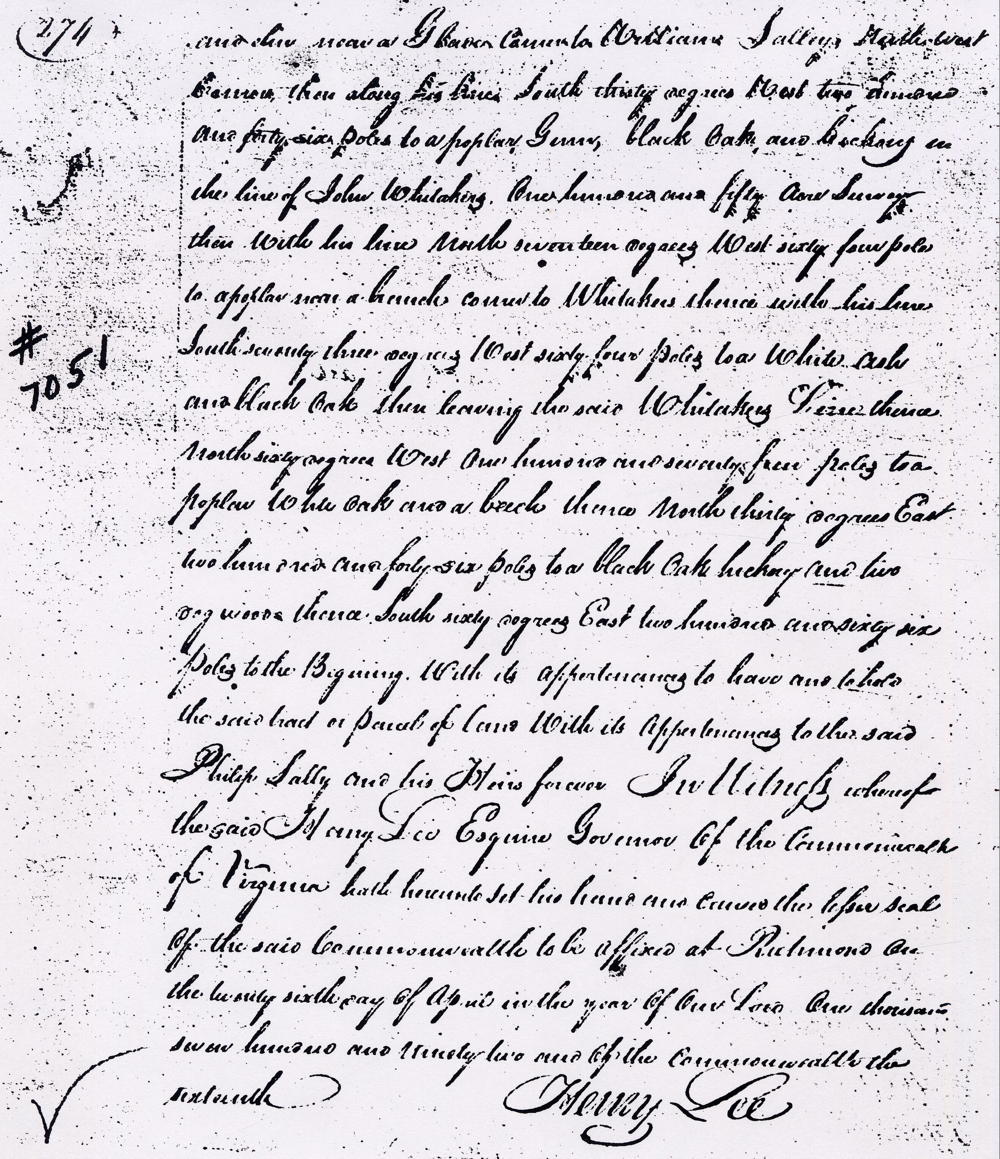 274
and elm near a Glade Corner to William Salleys North west
Corner, then along his line South thirty degrees West two hundred
and forty six poles to a poplar, Gum, black Oak, and hickory in
the line of John Whitakers. One hundred and fifty Acre Survey
then With his line North seventeen degrees West sixty four poles
to a poplar near a branch corner to Whitakers thence with his line
South seventy three degrees West sixty four poles to a White ash
and black Oak then leaving the said Whitakers Line thence
# 7051
North sixty degrees West One hundred and seventy four poles to a
poplar White Oak and a beech thence North thirty degrees East
two hundred and forty six poles to a black Oak hickory and two
dogwoods thence South sixty degrees East two hundred and sixty six
poles to the Begining. With its appertenances to have and to hold
the said tract or parcel of land With its Appertenances to the said
Philip Sally and his Heirs forever In Witness whereof
the said Henry Lee Esquire Governor Of the Commonwealth
of Virginia hath hereunto Set his hand and caused the lesser seal
Of the said Commonwealth to be affixed at Richmond On
the twenty sixth day Of April in the year Of Our Lord One thousand
seven hundred and Ninety two and Of the Commonwealth the
sixteenth
Henry Lee